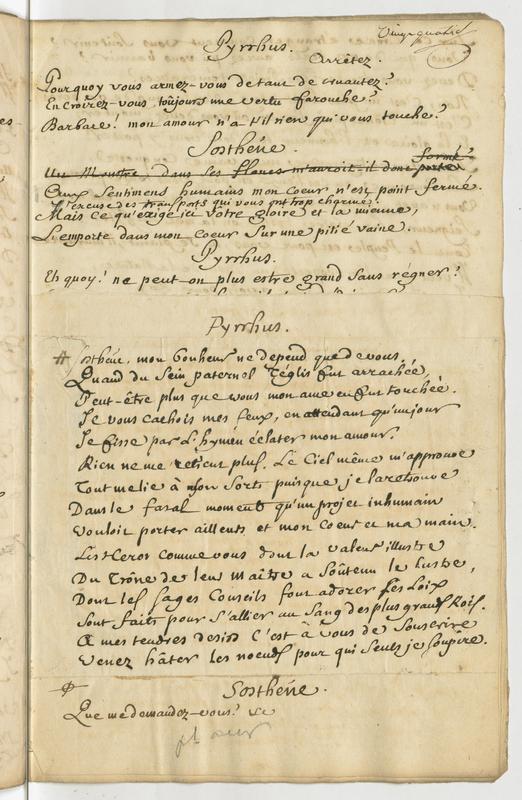 Vingt quatre
Pyrrhus.
Arrêtez.
Pourquoy vous armez-vous de tant de cruautez?
En croirez-vous toûjours une vertu farouche?
Barbare! mon amour n'a t'il rien qui vous touche?
Sosthéne.
formé?
Un Monstre, dans ses flancs m'auroit-il donc porté
Aux Sentimens humains mon coeur n'est point fermé.
J'excuse des transports qui vous ont trop charmé.
Mais ce qu'exige icy votre gloire et la mienne,
L'emporte dans mon coeur Sur une pitié vaine.
Pyrrhus.
Eh quoy! ne peut-on plus estre grand sans régner?
Pyrrhus.
# Sosthéne, mon bonheur ne depend que de vous.
Quand du Sein paternel Téglis fut arrachée,
Peut-être plus que vous mon ame en fut touchée.
Je vous cachois mes feux, en attendant qu'un jour
Je fisse par L'hymen éclater mon amour.
Rien ne me retient plus. Le Ciel même m'approuve
Tout me lie à son Sort, puisque je la retrouve
Dans le fatal moment qu'un projet inhumain
Vouloit porter ailleurs et mon Coeur et ma main.
Les Heros comme vous dont la valeur illustre
Du Trône de leur Maître a Soûtenu le lustre,
Dont les Sages Conseils font adorer ses Loix
Sont faits pour S'allier au Sang des plus grands Rois.
A mes tendres desirs C'est à vous de Souscrire
Venez hâter les noeuds pour qui Seuls je Soûpire.
Sosthéne.
Que me demandez-vous? &c